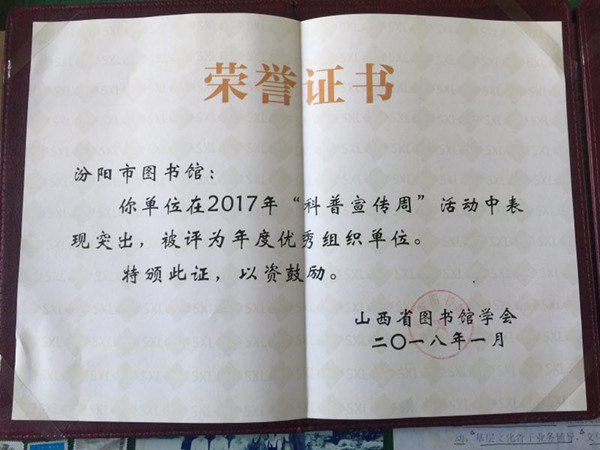 荣誉证书
汾阳市图书馆：
你单位在2017年“科普宣传周”活动中表
现突出，被评为年度优秀组织单位。
特颁此证，以资鼓励。
山西省图书馆学会
二〇一八年一月
动、“基层文化骨干业务辅导”